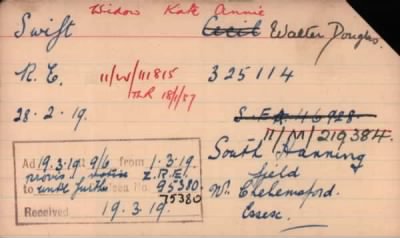 Widow Kate Annie
Swift Cecil Walter Douglas.
R.E. 11/W/111815 325114
18/1/57
28.2.19. S.E.A. 46928
11/M/219384.
Ad 19.3.19 at 9/6 from 1.3.19.
provis z.R.E.
to until further sea No. 95380.
75380
Received 19.3.19.
South Hanning
field
Nr. Chelmsford.
Essex.